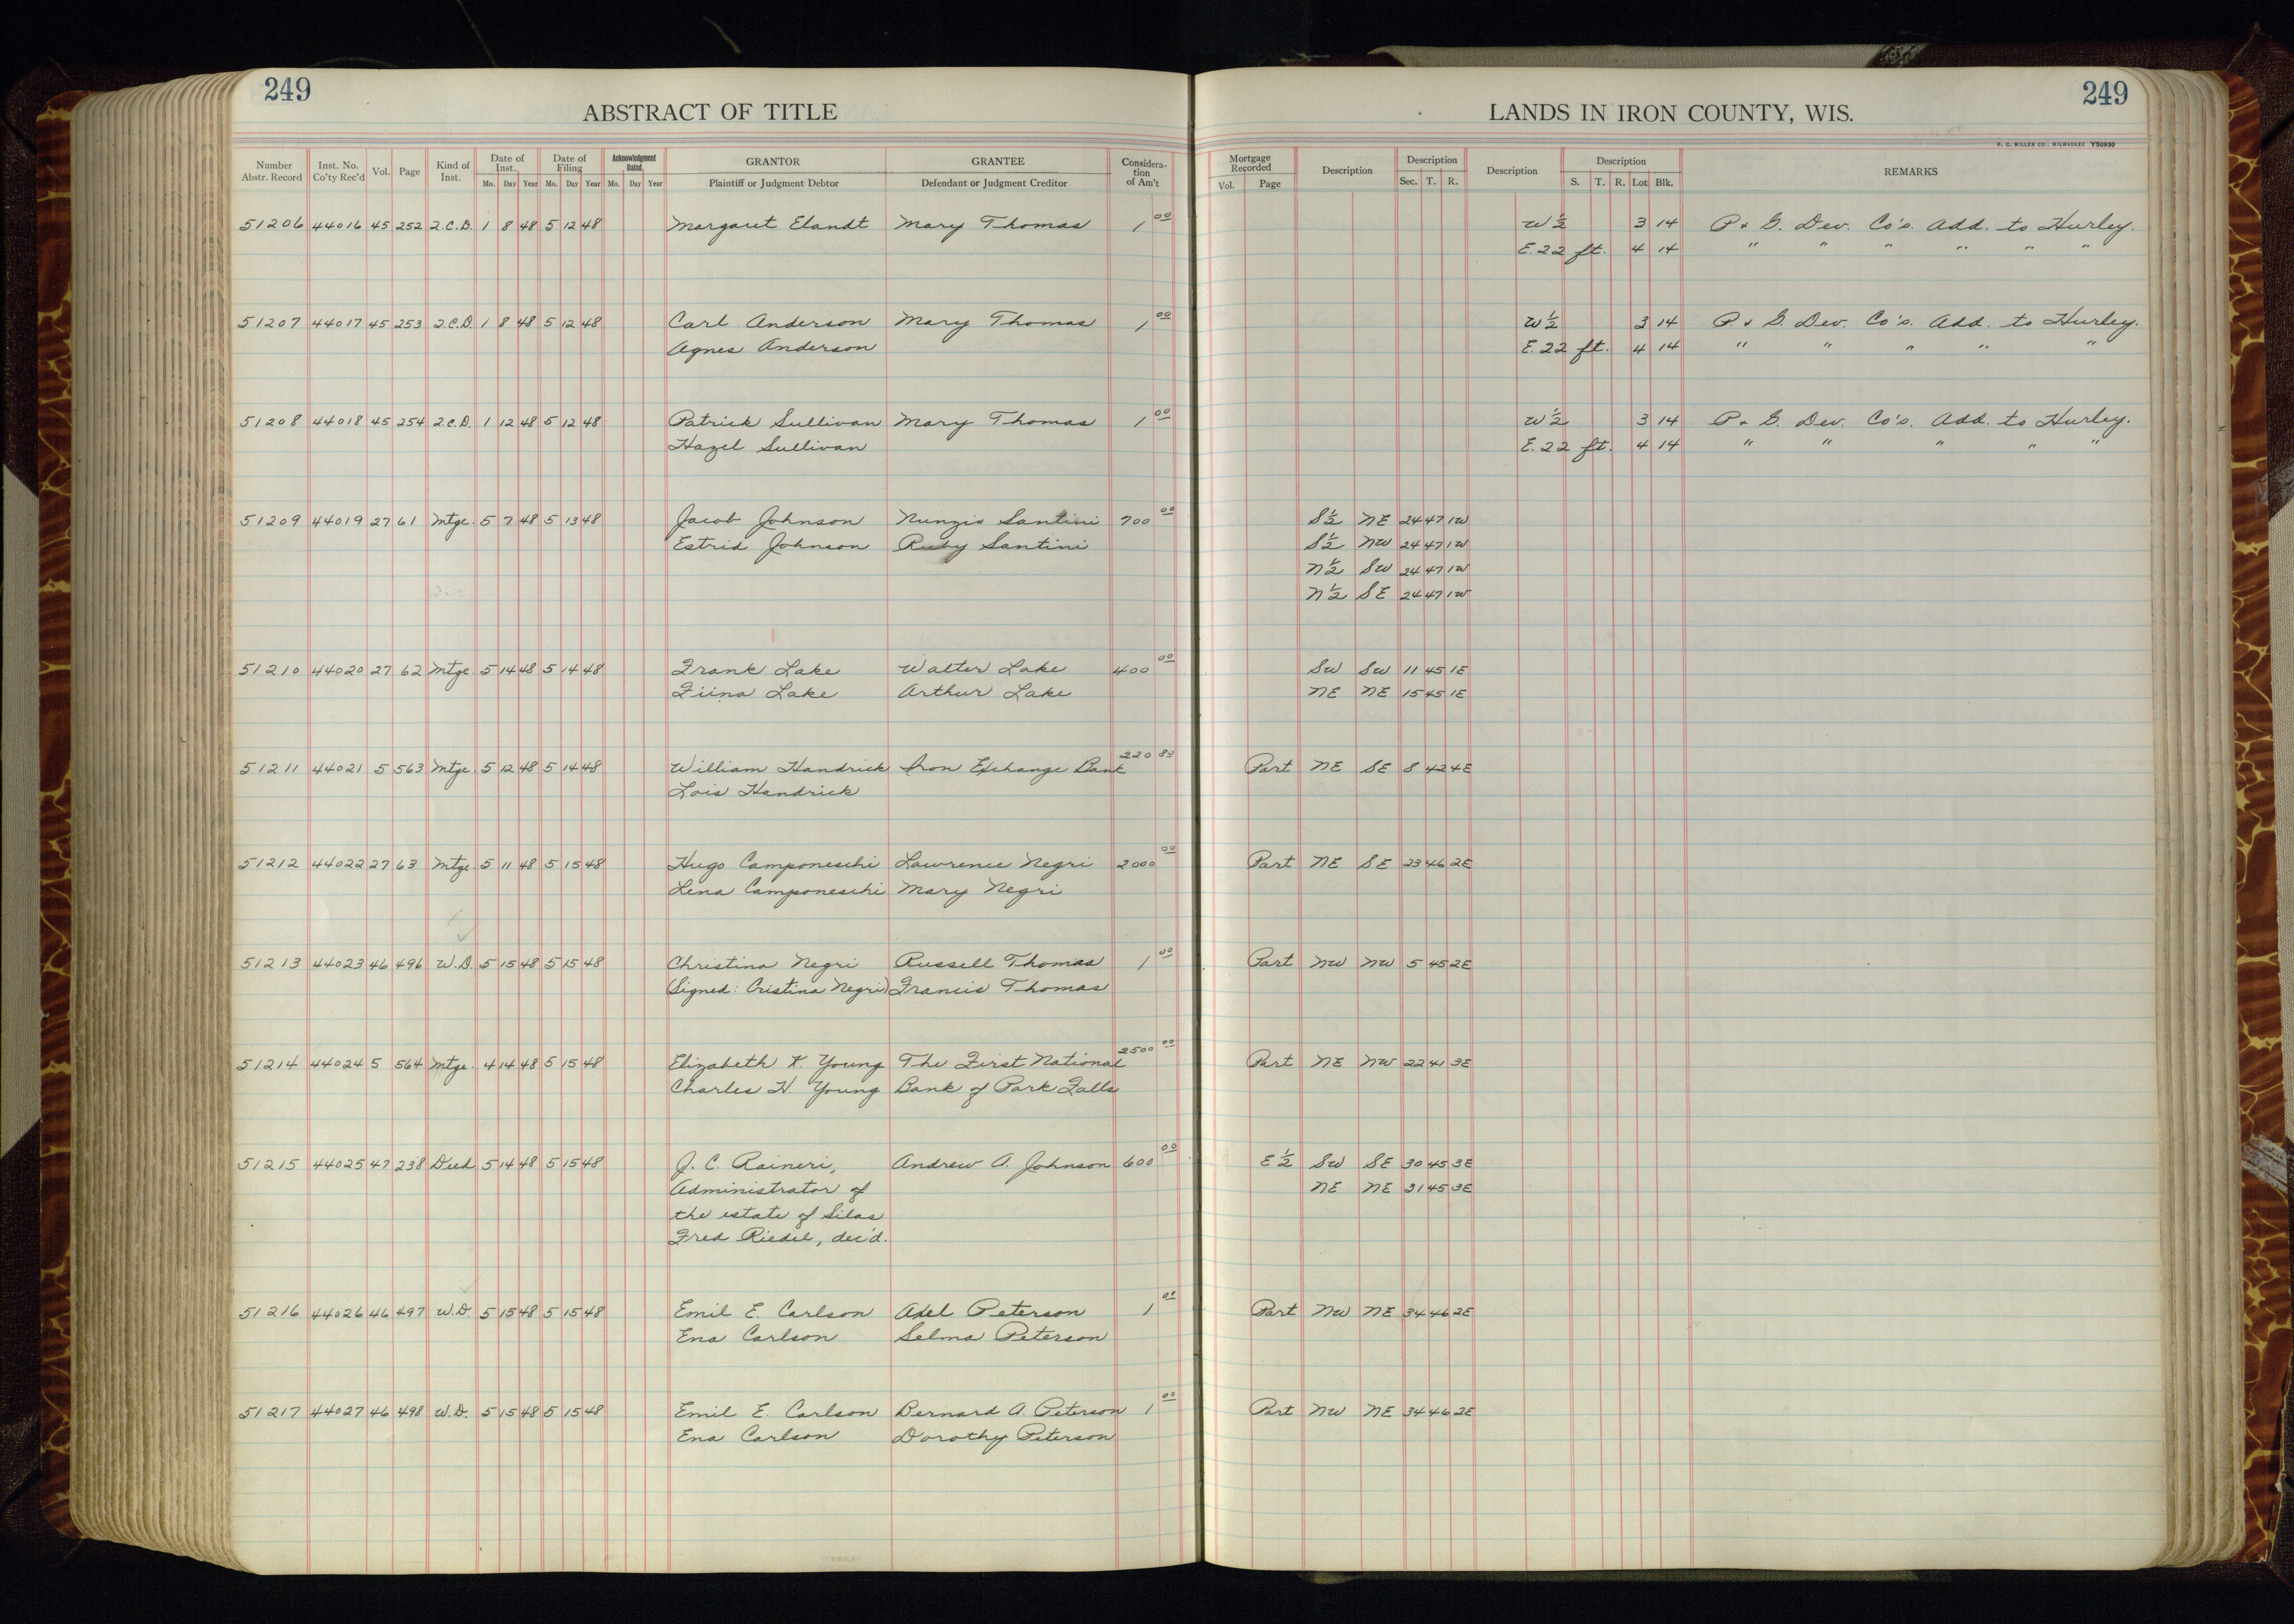 249
249
ABSTRACT OF TITLE
LANDS IN IRON COUNTY, WIS.
H. C. MILLER CO., MILWAUKEE Y50930
Number Abstr. Record Inst. No. Co'ty Rec'd Vol. Page Kind of Inst. Date of Inst. Mo. Day Year Date of Filing Mo. Day Year Acknowledgment Dated Mo. Day Year GRANTOR Plaintiff or Judgment Debtor GRANTEE Defendant or Judgment Creditor Considera-tion of Am't Mortgage Recorded Vol. Page Description Description Sec. T. R. Description Description S. T. R. Lot Blk. REMARKS
51206 44016 45 252 2.C.D. 1 8 48 5 12 48 Margaret Elandt Mary Thomas 1 00 W 1/2 3 14 P. & G. Dev. Co's. Add. to Hurley.
E. 22 ft. 4 14 " " " " " "
51207 44017 45 253 2.C.D. 1 8 48 5 12 48 Carl Anderson Mary Thomas 1 00 W 1/2 3 14 P. & G. Dev. Co's. Add. to Hurley.
Agnes Anderson E. 22 ft. 4 14 " " " " "
51208 44018 45 254 2.C.D. 1 12 48 5 12 48 Patrick Sullivan Mary Thomas 1 00 W 1/2 3 14 P. & G. Dev. Co's. Add. to Hurley.
Hazel Sullivan E. 22 ft. 4 14 " " " " "
51209 44019 27 61 Mtge. 5 7 48 5 13 48 Jacob Johnson Nunzio Santini 700 00 S 1/2 NE 24 47 1W
Estrid Johnson Ruby Santini S 1/2 NW 24 47 1W
N 1/2 SW 24 47 1W
N 1/2 SE 24 47 1W
51210 44020 27 62 Mtge. 5 14 48 5 14 48 Frank Lake Walter Lake 400 00 SW SW 11 45 1E
Fiina Lake Arthur Lake NE NE 15 45 1E
51211 44021 5 563 Mtge. 5 12 48 5 14 48 William Handrick Iron Exchange Bank 220 80 Part NE SE 8 42 4E
Lois Handrick
51212 44022 27 63 Mtge. 5 11 48 5 15 48 Hugo Camponeschi Lawrence Negri 2000 00 Part NE SE 23 46 2E
Lena Camponeschi Mary Negri
51213 44023 46 496 W.D. 5 15 48 5 15 48 Christina Negri Russell Thomas 1 00 Part NW NW 5 45 2E
(Signed: Cristina Negri) Francis Thomas
51214 44024 5 564 Mtge. 4 14 48 5 15 48 Elizabeth K Young The First National 2500 00 Part NE NW 22 41 3E
Charles H. Young Bank of Park Falls
51215 44025 47 238 Deed 5 14 48 5 15 48 J. C. Raineri, Andrew A. Johnson 600 00 E 1/2 SW SE 30 45 3E
Administrator of NE NE 31 45 3E
the estate of Silas
Fred Riedel, dec'd.
51216 44026 46 497 W.D. 5 15 48 5 15 48 Emil E. Carlson Axel Peterson 1 00 Part NW NE 34 46 2E
Ena Carlson Selma Peterson
51217 44027 46 498 W.D. 5 15 48 5 15 48 Emil E. Carlson Bernard A. Peterson 1 00 Part NW NE 34 46 2E
Ena Carlson Dorothy Peterson